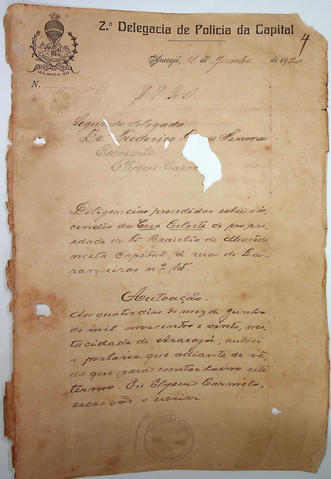 2.ª Delegacia de Policia da Capital
4
Aracajú, 4 de Junho de 1920
N.
1920.
Segundo delegado
Dr. Frederico
Escrivão,
Elyseu Carm
Diligencias procedidas sobre o in-
cendio da Casa Celeste de pro pri-
edade de Brasilio de Macêdo,
nesta Capital, á rua de La-
rangeiras nº 15.
Autoação.
Aos quatro dias do mez de Junho
de mil novecentos e vinte, nes-
ta cidade de Aracajú, autoei
a portaria que adiante se vê,
do que para constar lavro este
termo. Eu Elyseu Carmelo,
escrivão o escrevi.